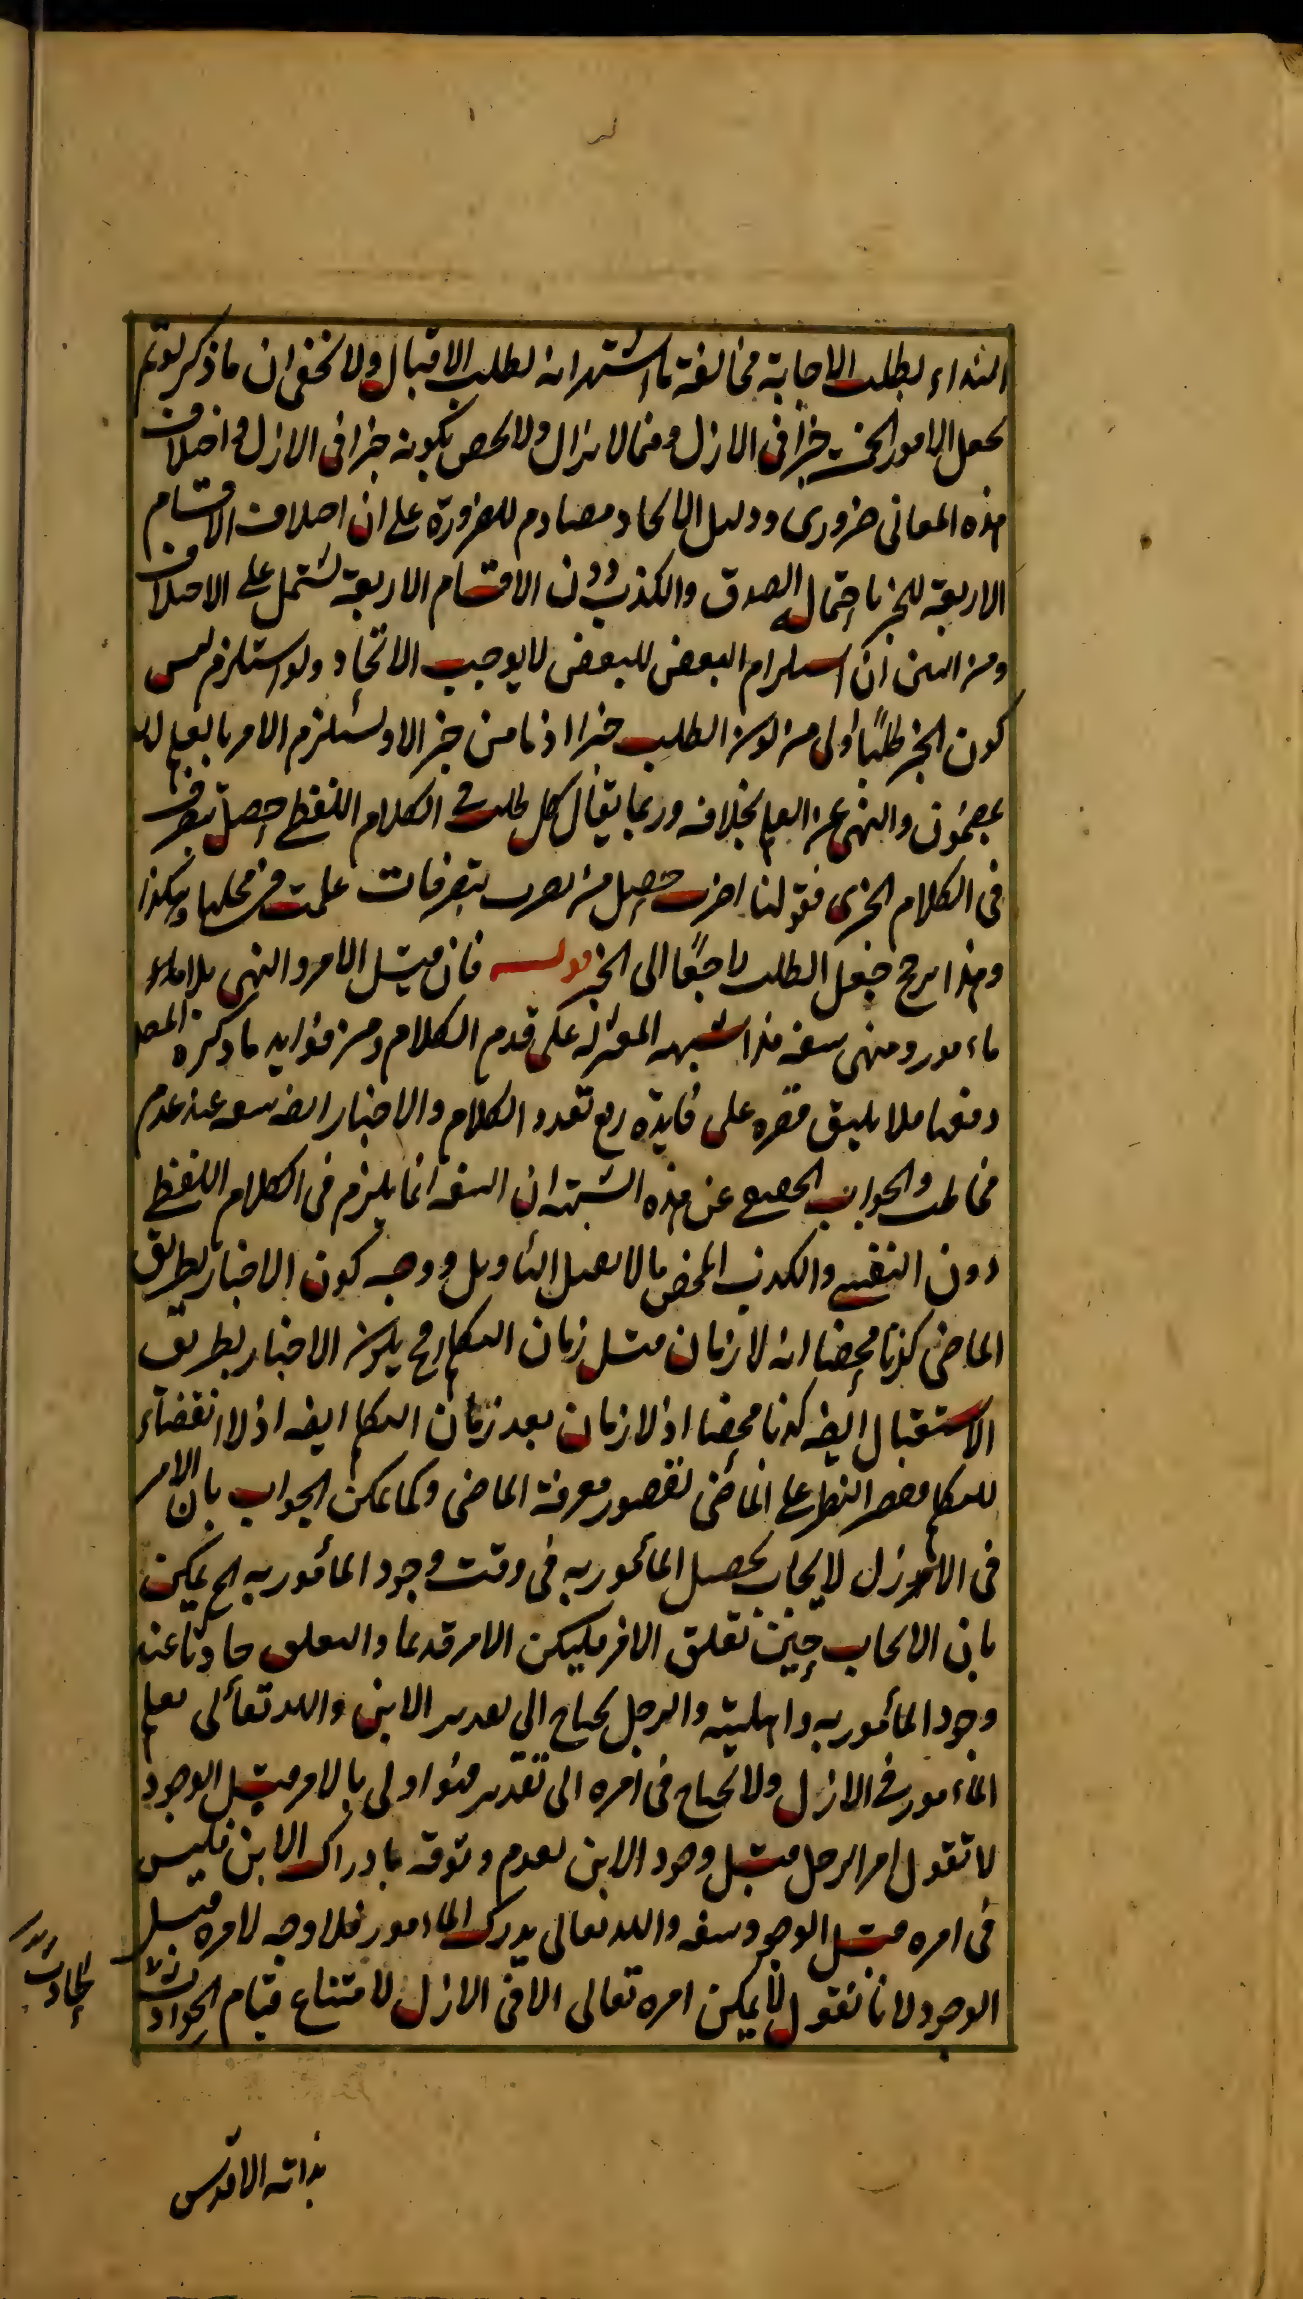 النداء لطلب الاجابة مخالفة ما اشتهر انه لطلب الاقبال ولا يخفى ان ما ذكر لو تم
لجعل الامور الخمسة خبرا في الازل وفيما لا يزال ولا يخص بكونه خبرا في الازل واختلاف
هذه المعاني ضروري ودليل الاتحاد مصادم للضرورة على ان اختلاف الاقسام
الاربعة للخبر باحتمال الصدق والكذب دون الاقسام الاربعة تشتمل على الاختلاف
ومن البين ان استلزام البعض للبعض لا يوجب الاتحاد ولو استلزم ليس
كون الخبر طلبا اولى من كون الطلب خبرا اذ ما من خبر الا ويستلزم الامر بالعلم
بمضمونه والنهى عن العلم بخلافه وربما يقال كل طلب في الكلام اللفظي حصل بتصرف
في الكلام الخبري فقولنا اضرب حصل من تضرب بتصرفات علمت في محلها وهكذا
وهذا يرجح جعل الطلب راجعا الى الخبر قوله فان قيل الامر والنهى بلا
مأمور ومنهى سفه هذا شبهه المعتزلة على قدم الكلام ومن فوايد ما ذكره
دفعها فلا يليق قصره على فايدة رفع تعدد الكلام والاخبار ايضا سفه عند عدم
مخاطب والجواب الصحيح عن هذه الشبهة ان السفه انما يلزم في الكلام اللفظي
دون النفسي والكذب المحض ما لا يقبل التأويل ووجه كون الاخبار بطريق
الماضى كذبا محضا انه لا زمان قبل زمان التكلم وح يكون الاخبار بطريق
الاستقبال ايضا كذبا محضا اذ لا زمان بعد زمان التكلم ايضا اذ لا انقضاء
للتكلم فقصر النظر على الماضى لقصور معرفة الماضى وكما يمكن الجواب بان الامر
في الازل لايجاب تحصيل المأمور به في وقت وجود المأمور به الخ يمكن
بان الايجاب حينئذ تعلق الامر فليكن الامر قديما والتعلق حادثا عند
وجود المأمور به واهليته والرجل يحتاج الى تقدير الابن والله تعالى يعلم
المأمور في الازل ولا يحتاج في امره الى تقدير فهو اولى بالامر قبل الوجود
لا تقول امر الرجل قبل وجود الابن لعدم وثوقه بادراك الابن فليس
في امره قبل الوجود سفه والله تعالى يدرك المأمور فلا وجه لامره قبل
الوجود لانا نقول لا يمكن امره تعالى الا في الازل لامتناع قيام الحوادث
بذاته الاقدس